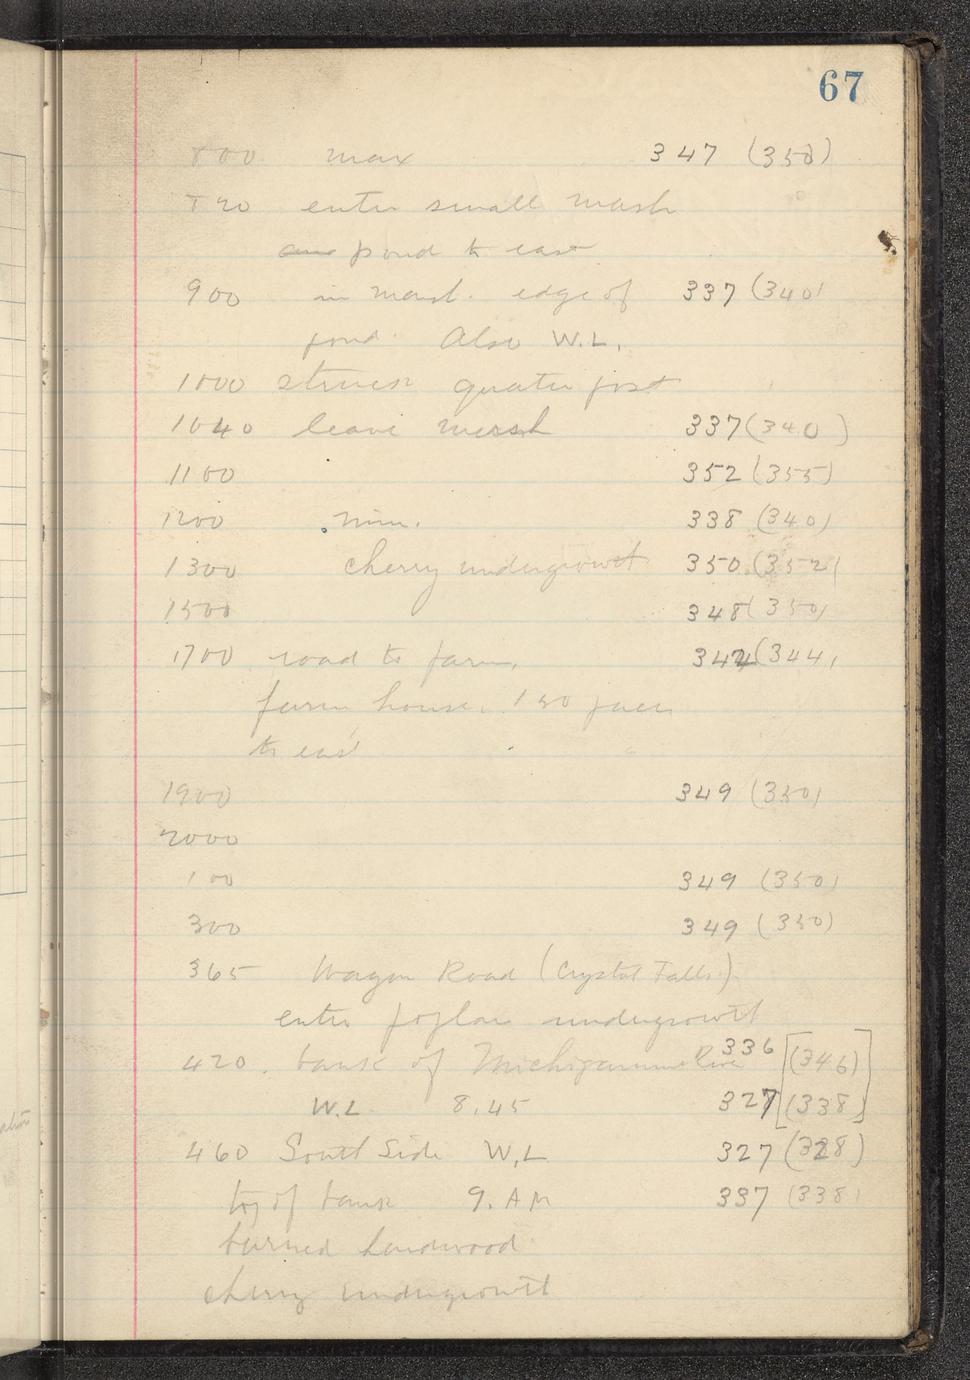 67
800 max 347 (350)
820 enter small marsh
and pond to east
900 in marsh. edge of 337 (340)
pond. Also W.L.
1000 strike quarter post
1040 leave marsh 337 (340)
1100 352 (355)
1200 min. 338 (340)
1300 cherry undergrowth 350 (352)
1500 348 (350)
1700 road to farm, 342 (344)
farm house. 150 paces
to east
1900 349 (350)
2000
100 349 (350)
300 349 (350)
365 Wagon Road (Crystal Falls)
enter poplar undergrowth
420. bank of Michigamme River 336 [(346)]
W.L 8.45 327 [(338)]
460 South Side W.L 327 (328)
top of bank 9. AM 337 (338)
burned hardwood
cherry undergrowth